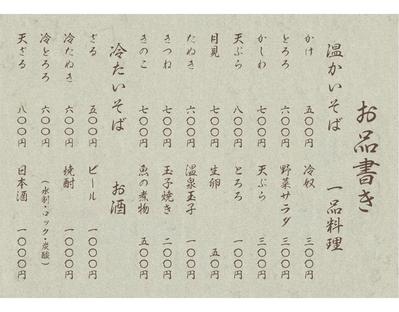 お品書き
温かいそば
かけ 五〇〇円
とろろ 六〇〇円
かしわ 七〇〇円
天ぷら 八〇〇円
月見 七〇〇円
たぬき 六〇〇円
きつね 七〇〇円
きのこ 七〇〇円
冷たいそば
ざる 五〇〇円
冷たぬき 六〇〇円
冷とろろ 六〇〇円
天ざる 八〇〇円
一品料理
冷奴 三〇〇円
野菜サラダ 三〇〇円
天ぷら 三〇〇円
とろろ 一〇〇円
生卵 五〇円
温泉玉子 一〇〇円
玉子焼き 二〇〇円
魚の煮物 五〇〇円
お酒
ビール 一〇〇〇円
焼酎 一〇〇〇円
（水割・ロック・炭酸）
日本酒 一〇〇〇円